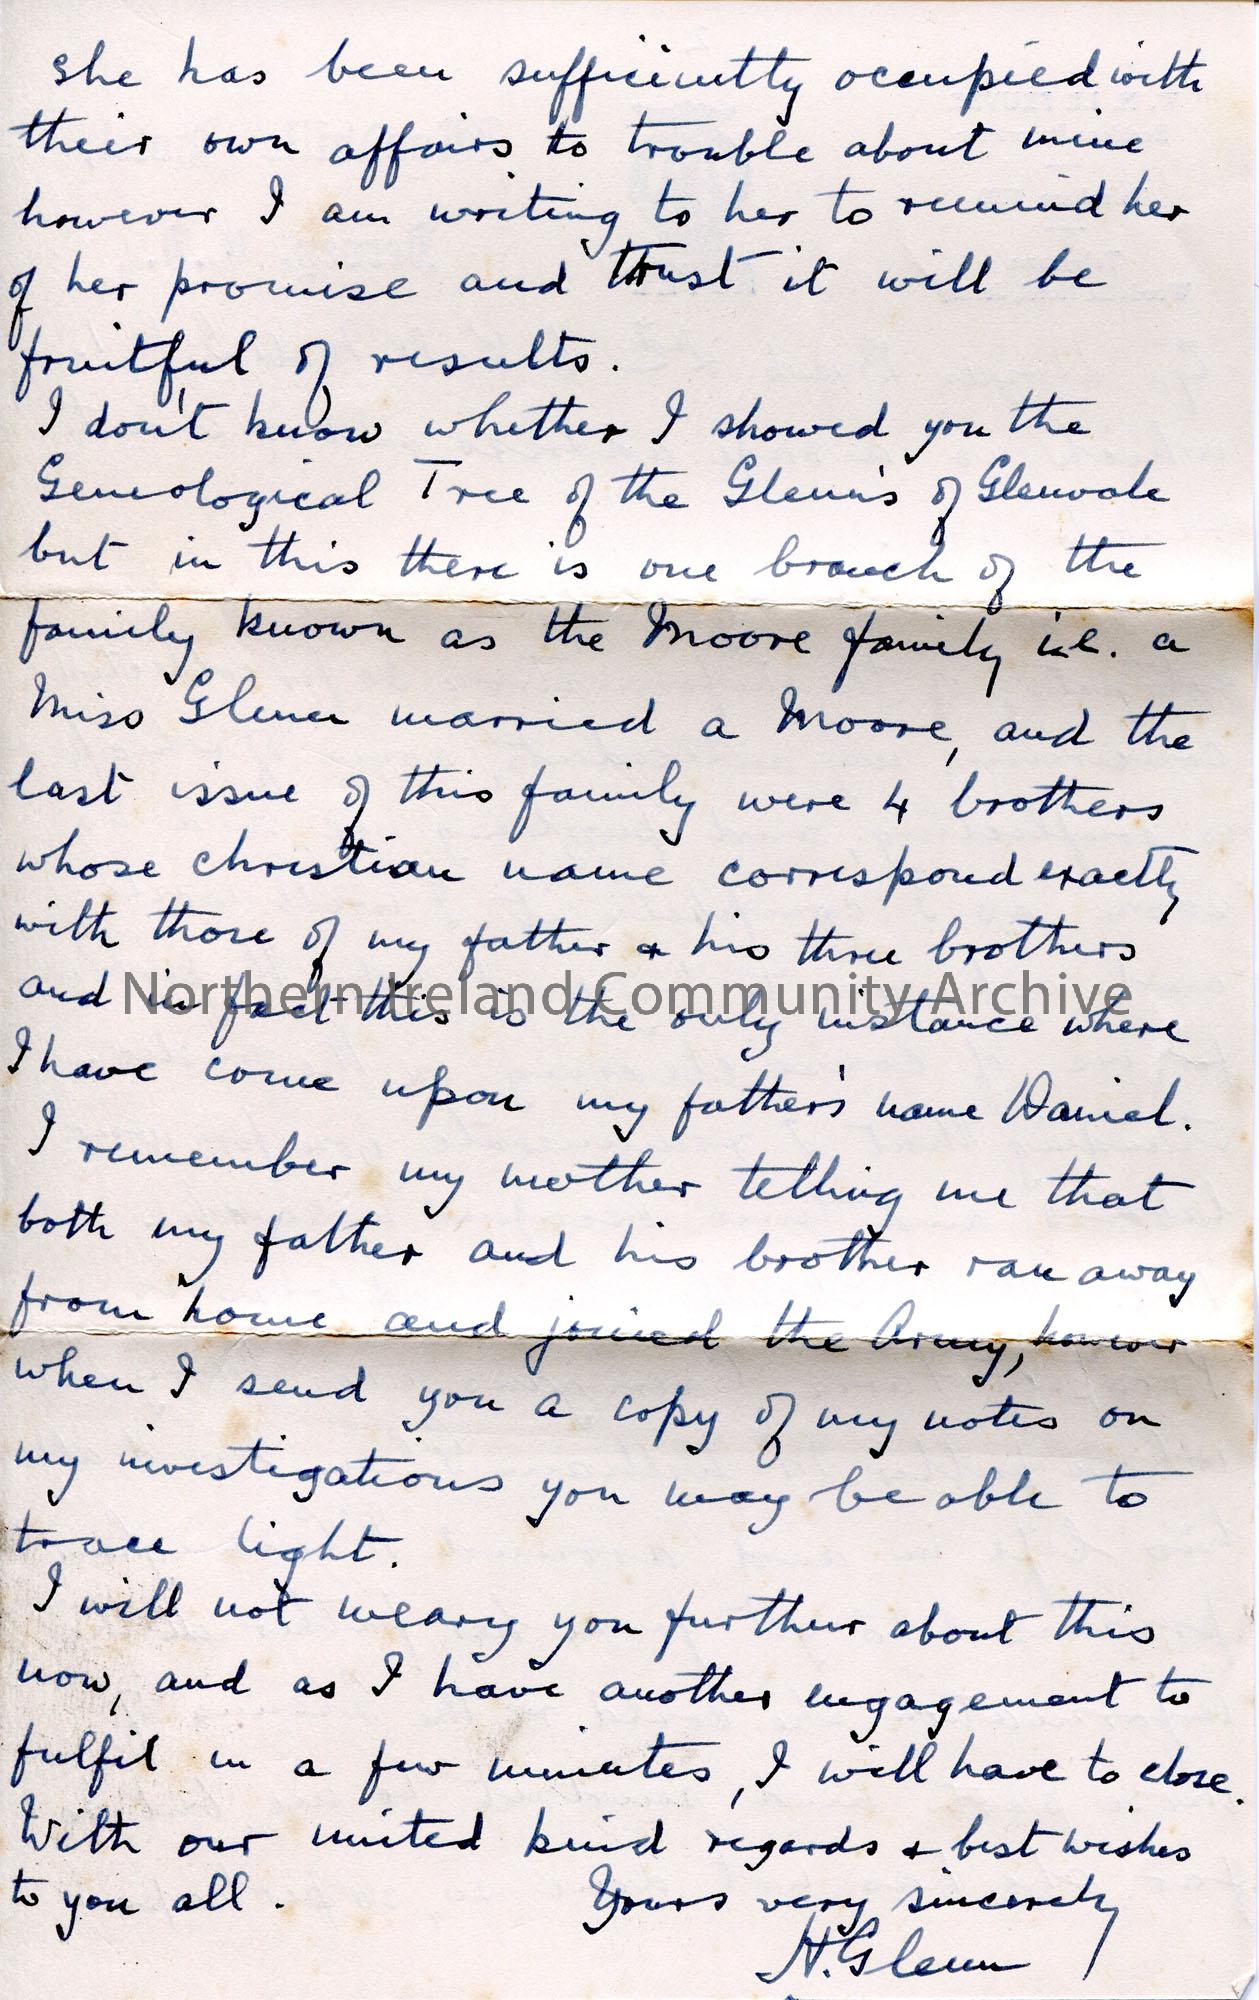 she has been sufficiently occupied with
their own affairs to trouble about mine
however I am writing to her to remind her
of her promise and trust it will be
fruitful of results.
I don't know whether I showed you the
Geneological Tree of the Glenn's of Glenvale
but in this there is one branch of the
family known as the Moore family i.e. a
Miss Glenn married a Moore, and the
last issue of this family were 4 brothers
whose christian name correspond exactly
with those of my father & his three brothers
and in fact this is the only instance where
Northern Ireland Community Archive
I have come upon my father's name Daniel.
I remember my mother telling me that
both my father and his brother ran away
from home and joined the Army, however
when I send you a copy of my notes on
my investigations you may be able to
trace light.
I will not weary you further about this
now, and as I have another engagement to
fulfil in a few minutes, I will have to close.
With our united kind regards & best wishes
to you all. Yours very sincerely
H. Glenn